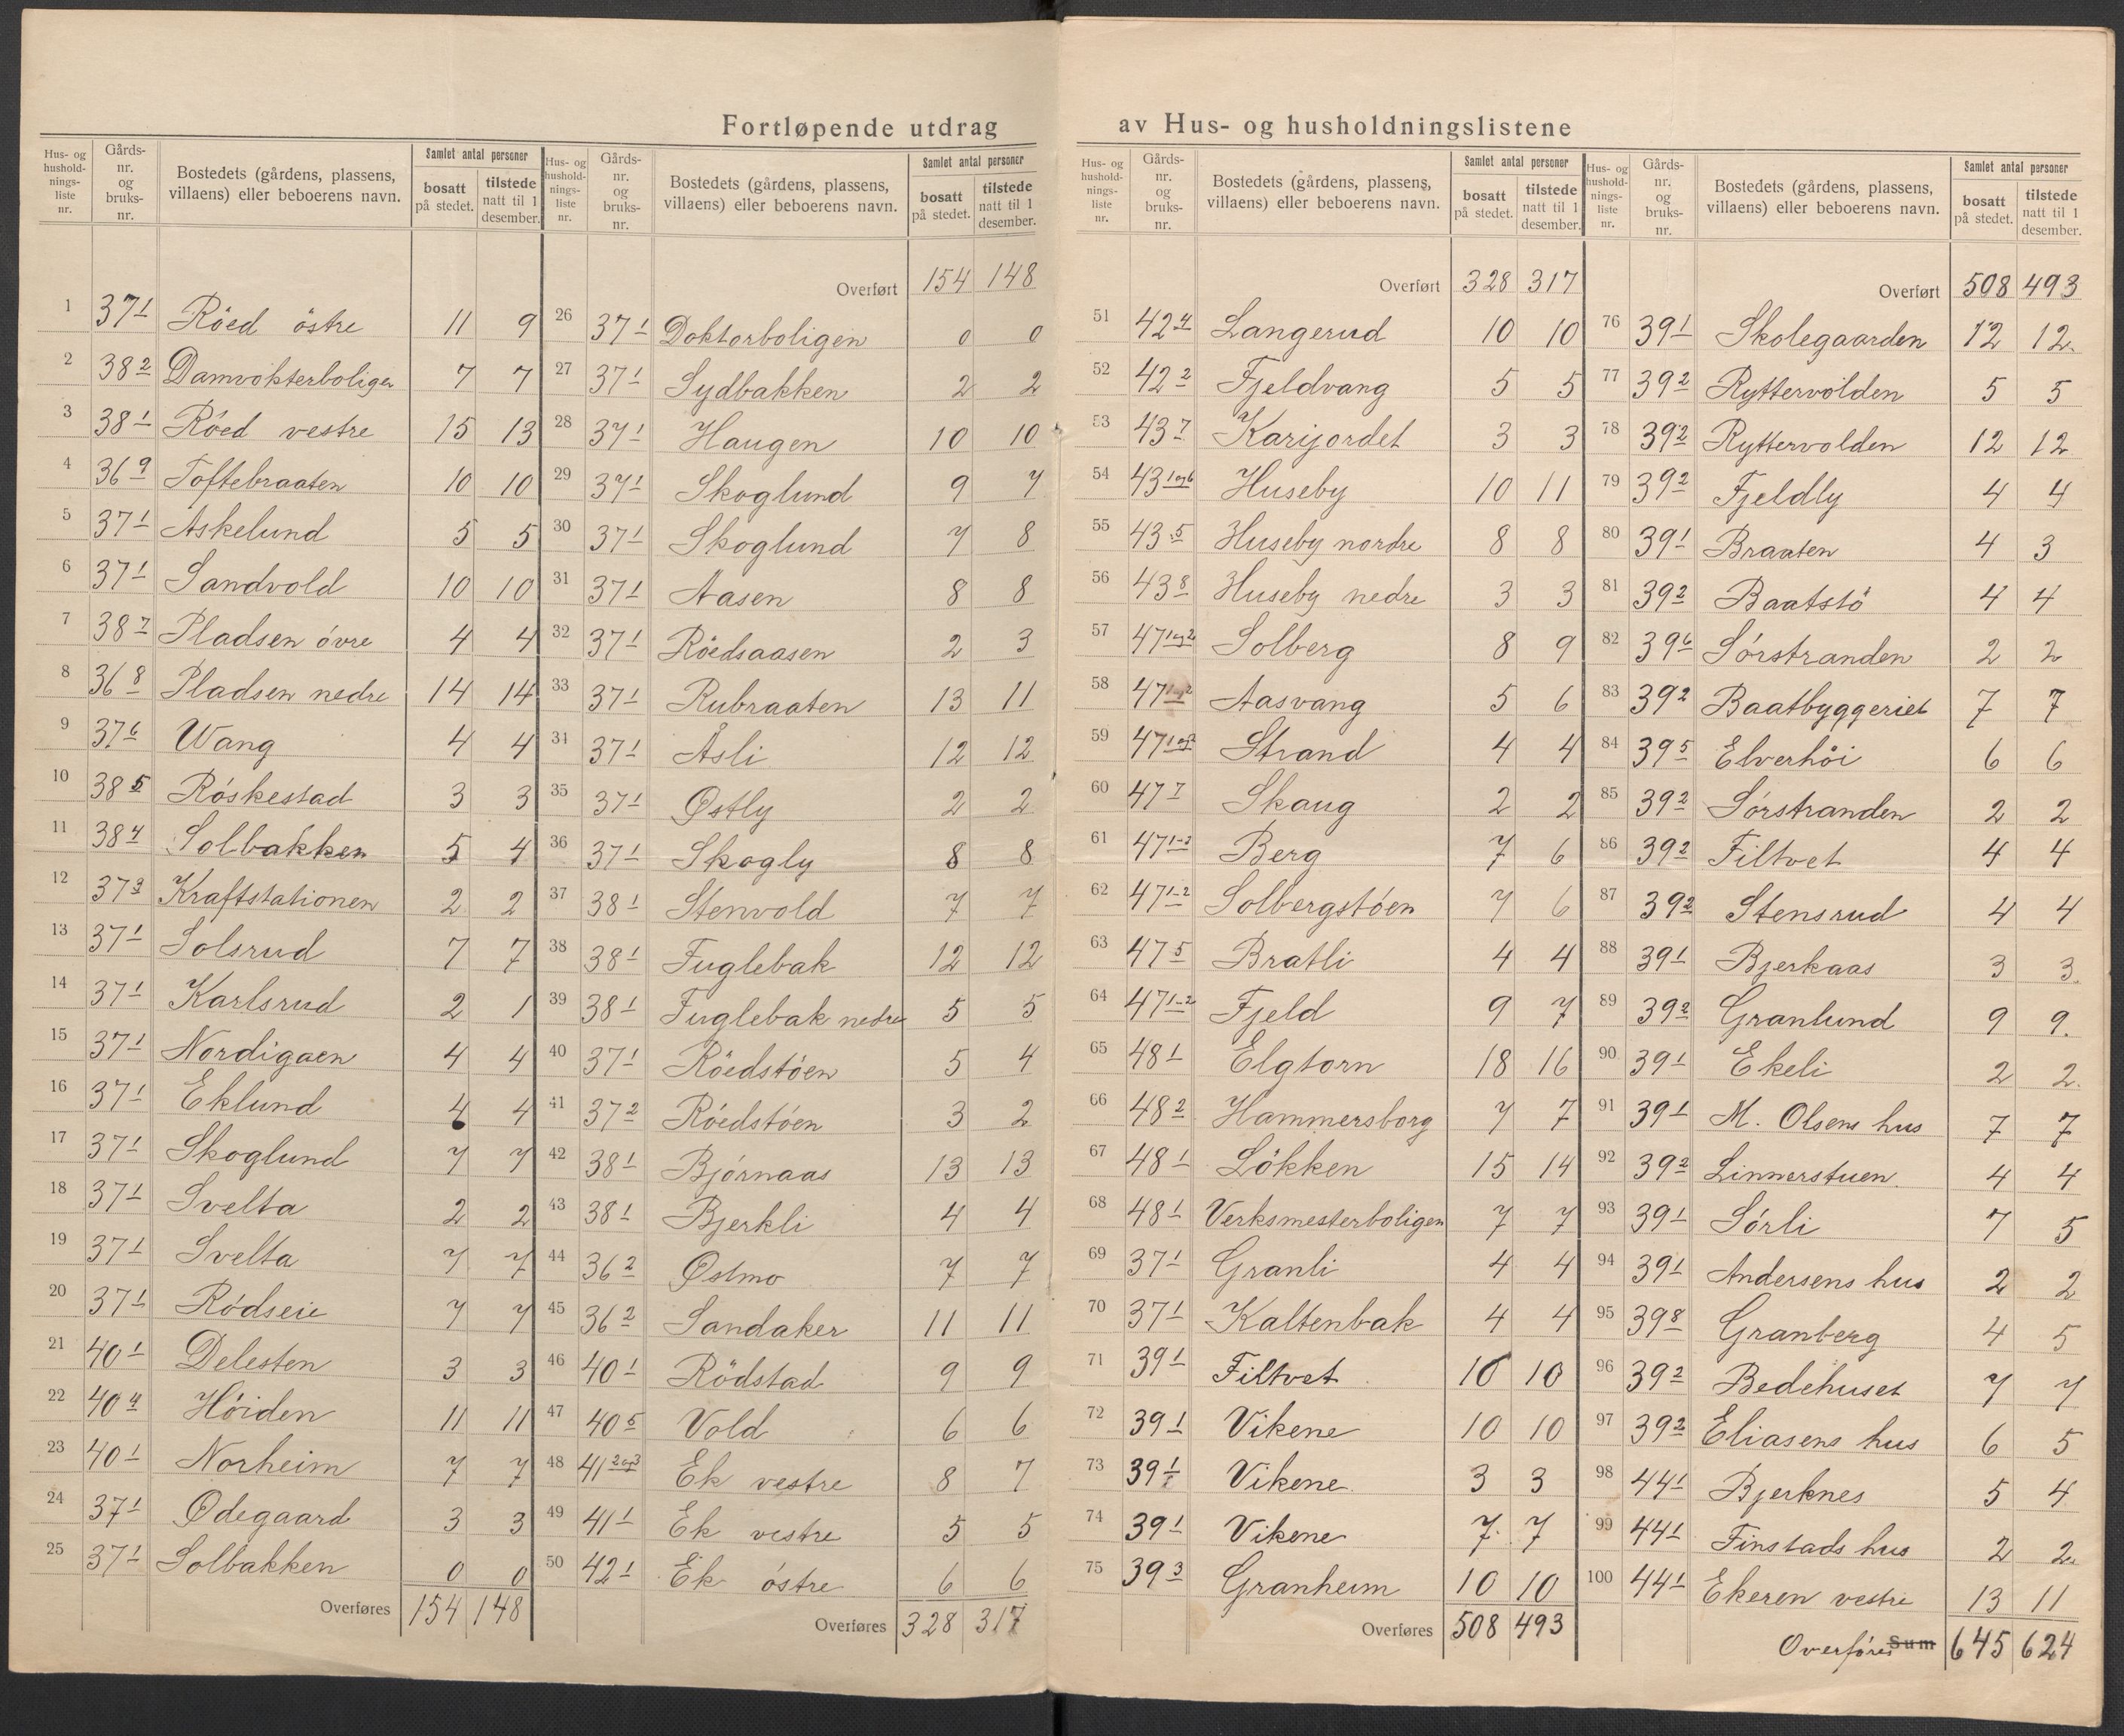 Fortløpende utdrag av Hus- og husholdningslistene
Hus- og hushold-nings-liste nr. | Gårds-nr. og bruks-nr. | Bostedets (gårdens, plassens, villaens) eller beboerens navn. | Samlet antal personer | bosatt på stedet. | tilstede natt til 1 desember.
1 37 1 Röed östre 11 9
2 38 2 Damvokterboligen 7 7
3 38 1 Róed vestre 15 13
4 36 9 Toftebraaten 10 10
5 37 1 Askelund 5 5
6 37 1 Sandvold 10 10
7 38 7 Pladsen óvre 4 4
8 36 8 Pladsen nedre 14 14
9 37 6 Wang 4 4
10 38 5 Róskestad 3 3
11 38 4 Solbakken 5 4
12 37 3 Kraftstationen 2 2
13 37 1 Solsrud 7 7
14 37 1 Karlsrud 2 1
15 37 1 Nordigaen 4 4
16 37 1 Eklund 4 4
17 37 1 Skoglund 7 7
18 37 1 Svelta 2 2
19 37 1 Svelta 7 7
20 37 1 Ródseie 7 7
21 40 1 Delesten 3 3
22 40 4 Hóiden 11 11
23 40 1 Norheim 7 7
24 37 1 Ødegaard 3 3
25 37 1 Solbakken 0 0
Overføres 154 148
Hus- og hushold-nings-liste nr. | Gårds-nr. og bruks-nr. | Bostedets (gårdens, plassens, villaens) eller beboerens navn. | Samlet antal personer | bosatt på stedet. | tilstede natt til 1 desember.
Overført 154 148
26 37 1 Doktorboligen 0 0
27 37 1 Sydbakken 2 2
28 37 1 Haugen 10 10
29 37 1 Skoglund 9 7
30 37 1 Skoglund 7 8
31 37 1 Aasen 8 8
32 37 1 Röedsaasen 2 3
33 37 1 Rubraaten 13 11
34 37 1 Åsli 12 12
35 37 1 Østly 2 2
36 37 1 Skogly 8 8
37 38 1 Stenvold 7 7
38 38 1 Fuglebak 12 12
39 38 1 Fuglebak nedre 5 5
40 37 1 Röedstöen 5 4
41 37 2 Róedstóen 3 2
42 38 1 Bjórnaas 13 13
43 38 1 Bjerkli 4 4
44 36 2 Østmo 7 7
45 36 2 Sandaker 11 11
46 40 1 Rödstad 9 9
47 40 5 Vold 6 6
48 41 2 og 3 Ek vestre 8 7
49 41 1 Ek vestre 5 5
50 42 1 Ek östre 6 6
Overføres 328 317
Hus- og hushold-nings-liste nr. | Gårds-nr. og bruks-nr. | Bostedets (gårdens, plassens, villaens) eller beboerens navn. | Samlet antal personer | bosatt på stedet. | tilstede natt til 1 desember.
Overført 328 317
51 42 4 Langerud 10 10
52 42 2 Fjeldvang 5 5
53 43 7 Karijordet 3 3
54 43 1 og 6 Huseby 10 11
55 43 5 Huseby nordre 8 8
56 43 8 Huseby nedre 3 3
57 47 1 og 2 Solberg 8 9
58 47 1 og 2 Aasvang 5 6
59 47 1 og 2 Strand 4 4
60 47 7 Skaug 2 2
61 47 1-2 Berg 7 6
62 47 1-2 Solbergstóen 7 6
63 47 5 Bratli 4 4
64 47 1-2 Fjeld 9 7
65 48 1 Elgtorn 18 16
66 48 2 Hammersborg 7 7
67 48 1 Lökken 15 14
68 48 1 Verksmesterboligen 7 7
69 37 1 Granli 4 4
70 37 1 Kaltenbak 4 4
71 39 1 Filtvet 10 10
72 39 1 Vikene 10 10
73 39 1 Vikene 3 3
74 39 1 Vikene 7 7
75 39 3 Granheim 10 10
Overføres 508 493
Hus- og hushold-nings-liste nr. | Gårds-nr. og bruks-nr. | Bostedets (gårdens, plassens, villaens) eller beboerens navn. | Samlet antal personer | bosatt på stedet. | tilstede natt til 1 desember.
Overført 508 493
76 39 1 Skolegaarden 12 12
77 39 2 Ryttervolden 5 5
78 39 2 Ryttervolden 12 12
79 39 2 Fjeldly 4 4
80 39 1 Braaten 4 3
81 39 2 Baatstö 4 4
82 39 6 Sórstranden 2 2
83 39 2 Baatbyggeriet 7 7
84 39 5 Elverhöi 6 6
85 39 2 Sórstranden 2 2
86 39 2 Filtvet 4 4
87 39 2 Stensrud 4 4
88 39 1 Bjerkaas 3 3
89 39 2 Granlund 9 9
90 39 1 Ekeli 2 2
91 39 1 M. Olsens hus 7 7
92 39 2 Linnerstuen 4 4
93 39 1 Sórli 7 5
94 39 1 Andersens hus 2 2
95 39 8 Granberg 4 5
96 39 2 Bedehuset 7 7
97 39 2 Eliasens hus 6 5
98 44 1 Bjerknes 5 4
99 44 1 Finstads hus 2 2
100 44 1 Ekeren vestre 13 11
Overføres Sum 645 624